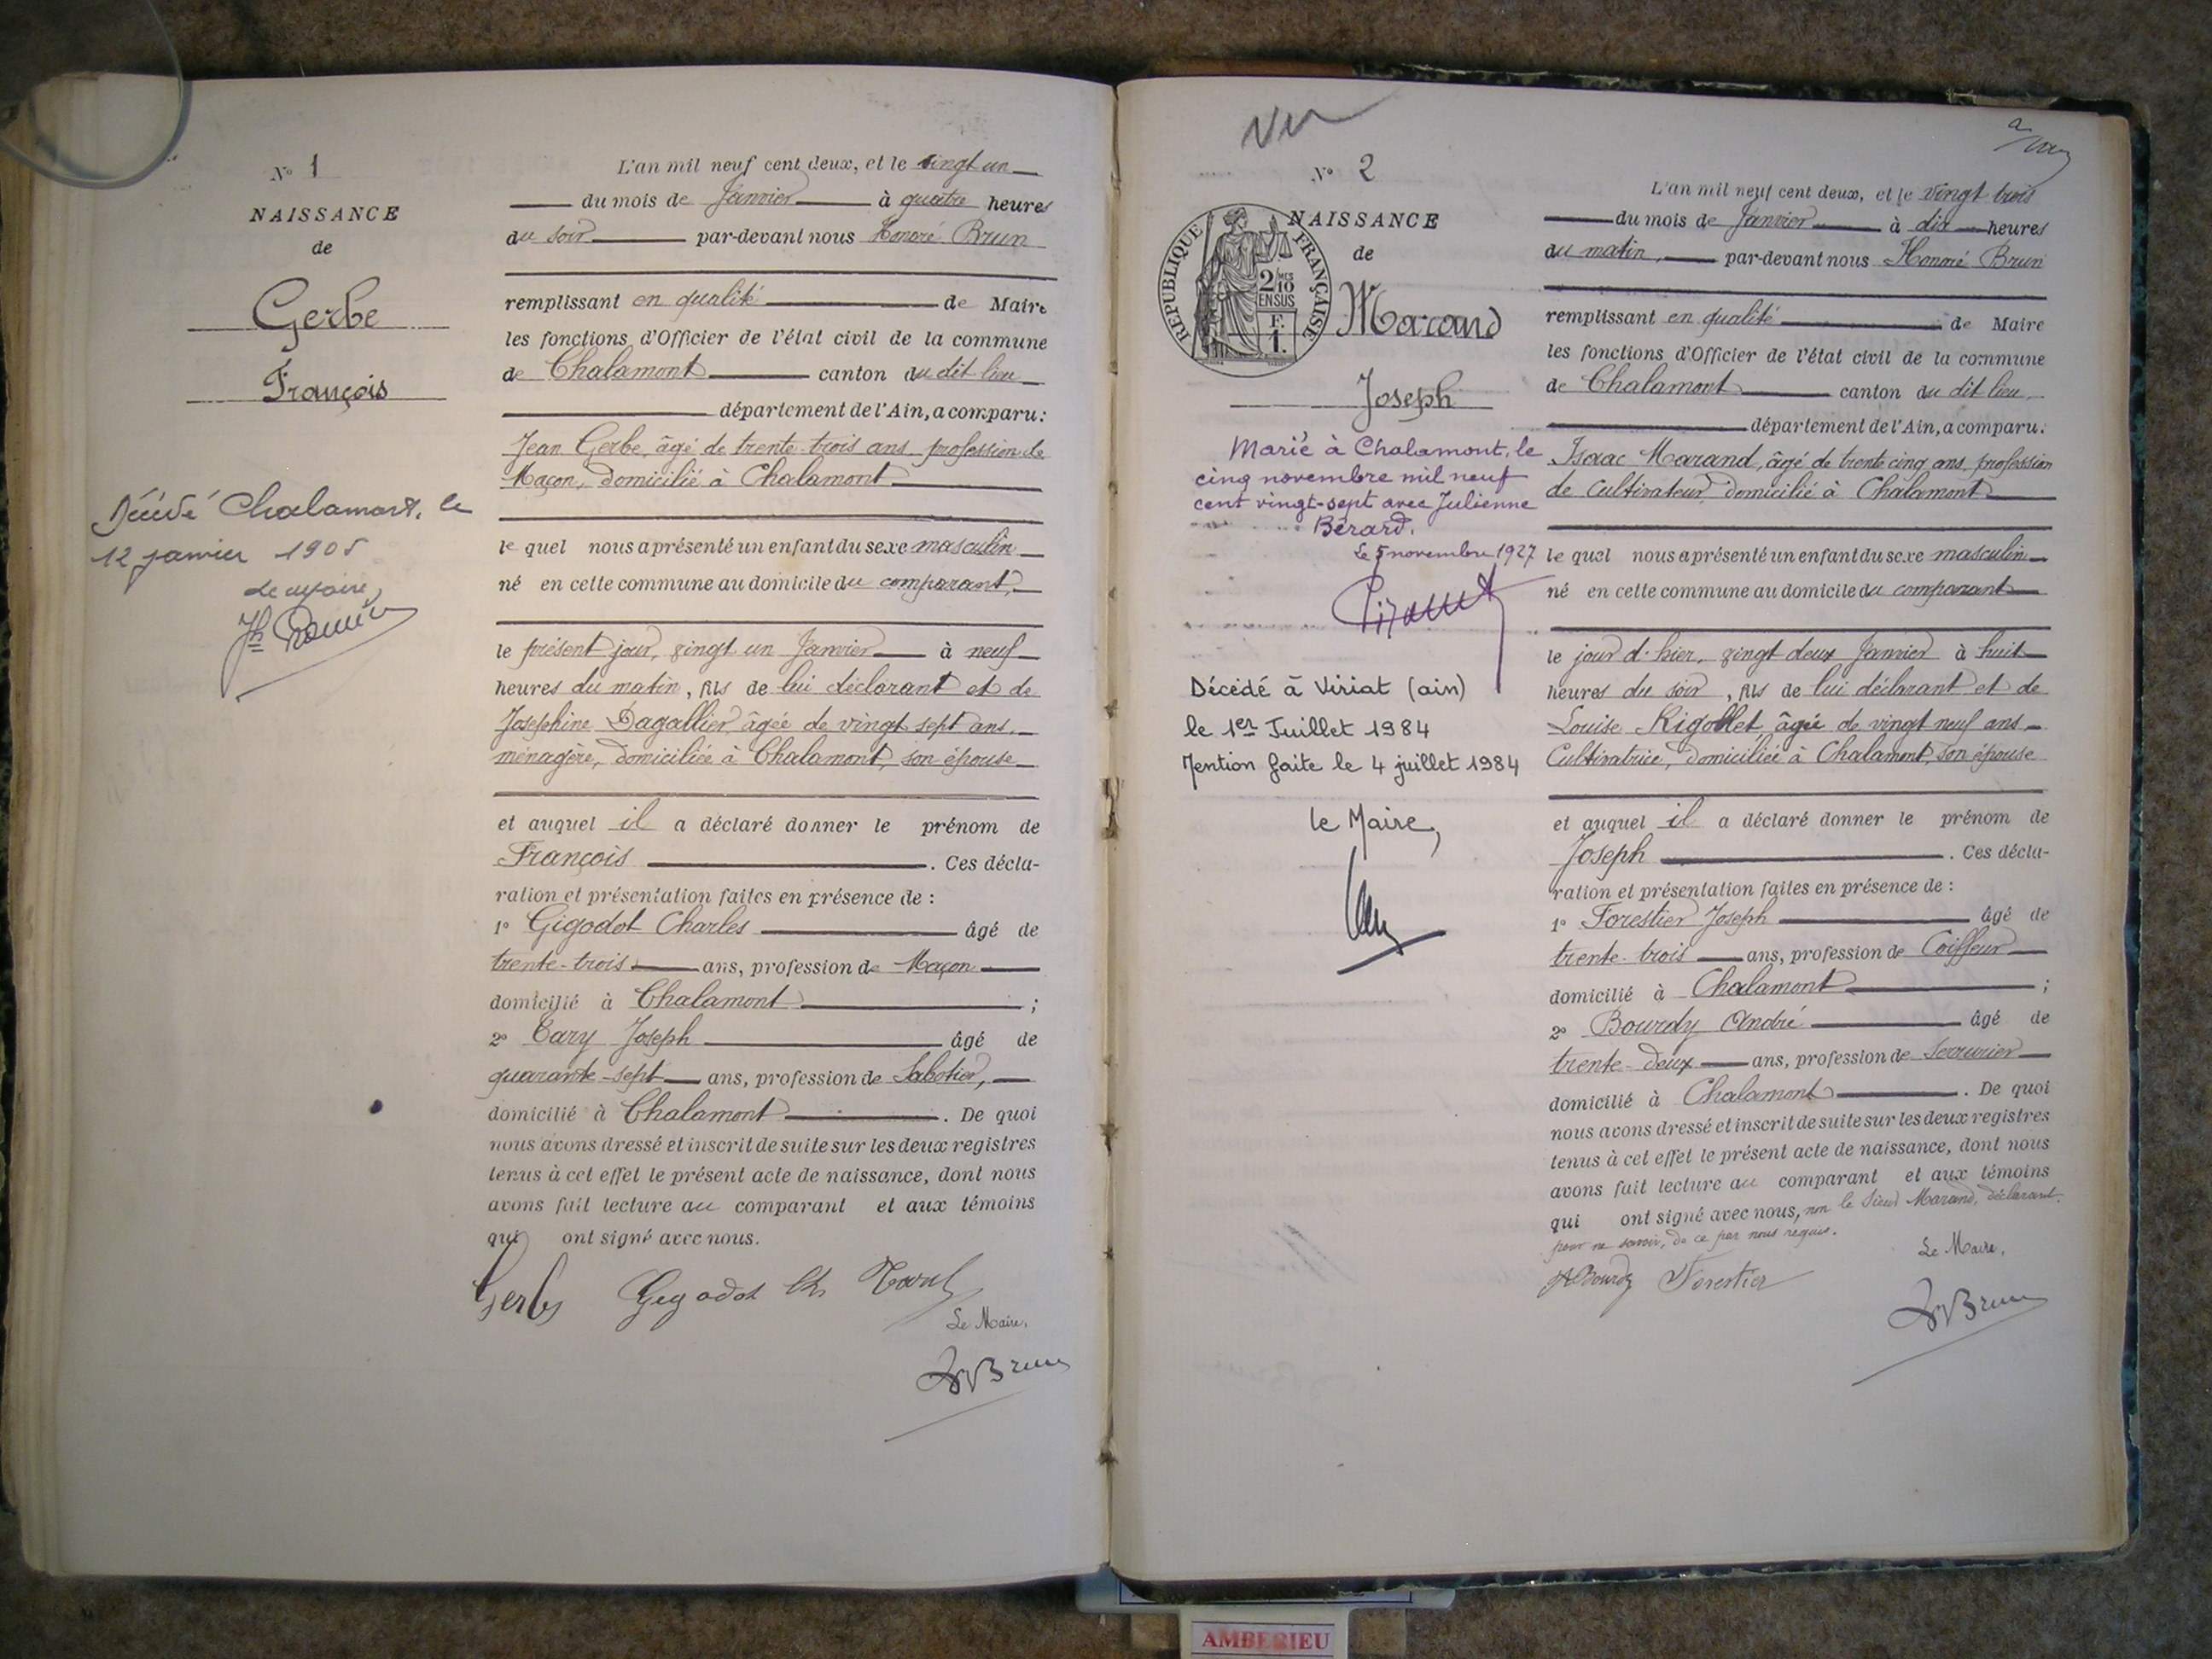 N° 1
NAISSANCE
de
Gerbe
François
Décédé Chalamont, le
12 janvier 1905
Le Maire,
L'an mil neuf cent deux, et le vingt un
du mois de Janvier à quatre heures
du soir par-devant nous Honoré Brun
remplissant en qualité de Maire
les fonctions d'Officier de l'état civil de la commune
de Chalamont canton du dit lieu
département de l'Ain, a comparu:
Jean Gerbe, âgé de trente-trois ans, profession de
Maçon, domicilié à Chalamont
le quel nous a présenté un enfant du sexe masculin
né en cette commune au domicile du comparant,
le présent jour, vingt un Janvier à neuf
heures du matin, fils de lui déclarant et de
Joséphine Dagallier, âgée de vingt sept ans,
ménagère, domiciliée à Chalamont, son épouse
et auquel il a déclaré donner le prénom de
François . Ces décla-
ration et présentation faites en présence de :
1° Gigodot Charles âgé de
trente-trois ans, profession de Maçon
domicilié à Chalamont ;
2° Cary Joseph âgé de
quarante-sept ans, profession de Sabotier,
domicilié à Chalamont . De quoi
nous avons dressé et inscrit de suite sur les deux registres
tenus à cet effet le présent acte de naissance, dont nous
avons fait lecture au comparant et aux témoins
qui ont signé avec nous.
Gerbe Gigodot Ch
Le Maire,
Brun
N° 2
NAISSANCE
de
RÉPUBLIQUE FRANÇAISE
2/10 MES
EN SUS
F.
1.
Marand
Joseph
Marié à Chalamont, le
cinq novembre mil neuf
cent vingt-sept avec Julienne
Bérard.
Le 5 novembre 1927
Décédé à Viriat (ain)
le 1er Juillet 1984
Mention faite le 4 juillet 1984
le Maire,
2
L'an mil neuf cent deux, et le vingt trois
du mois de Janvier à dix heures
du matin, par-devant nous Honoré Brun
remplissant en qualité de Maire
les fonctions d'Officier de l'état civil de la commune
de Chalamont canton du dit lieu,
département de l'Ain, a comparu:
Isaac Marand, âgé de trente cinq ans, profession
de Cultivateur, domicilié à Chalamont
le quel nous a présenté un enfant du sexe masculin
né en cette commune au domicile du comparant
le jour d'hier, vingt deux Janvier à huit
heures du soir, fils de lui déclarant et de
Louise Rigollet, âgée de vingt neuf ans
Cultivatrice, domiciliée à Chalamont, son épouse
et auquel il a déclaré donner le prénom de
Joseph . Ces décla-
ration et présentation faites en présence de :
1° Forestier Joseph âgé de
trente-trois ans, profession de Coiffeur
domicilié à Chalamont ;
2° Bourdy André âgé de
trente-deux ans, profession de Serrurier
domicilié à Chalamont . De quoi
nous avons dressé et inscrit de suite sur les deux registres
tenus à cet effet le présent acte de naissance, dont nous
avons fait lecture au comparant et aux témoins
qui ont signé avec nous, non le Sieur Marand, déclarant,
pour ne savoir, de ce par nous requis.
Le Maire,
ABourdy Forestier
Brun
AMBERIEU